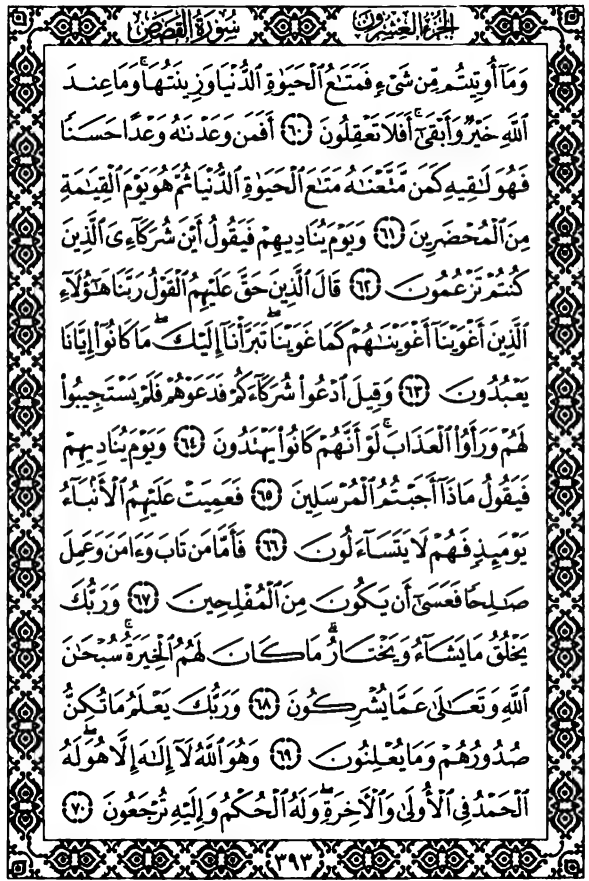 سُورَةُ القَصَصِ الجُزْءُ العِشْرُونَ
وَمَآ أُوتِيتُم مِّن شَىْءٍ فَمَتَٰعُ ٱلْحَيَوٰةِ ٱلدُّنْيَا وَزِينَتُهَا ۚ وَمَا عِندَ
ٱللَّهِ خَيْرٌ وَأَبْقَىٰٓ ۚ أَفَلَا تَعْقِلُونَ ٦٠ أَفَمَن وَعَدْنَٰهُ وَعْدًا حَسَنًا
فَهُوَ لَٰقِيهِ كَمَن مَّتَّعْنَٰهُ مَتَٰعَ ٱلْحَيَوٰةِ ٱلدُّنْيَا ثُمَّ هُوَ يَوْمَ ٱلْقِيَٰمَةِ
مِنَ ٱلْمُحْضَرِينَ ٦١ وَيَوْمَ يُنَادِيهِمْ فَيَقُولُ أَيْنَ شُرَكَآءِىَ ٱلَّذِينَ
كُنتُمْ تَزْعُمُونَ ٦٢ قَالَ ٱلَّذِينَ حَقَّ عَلَيْهِمُ ٱلْقَوْلُ رَبَّنَا هَٰٓؤُلَآءِ
ٱلَّذِينَ أَغْوَيْنَآ أَغْوَيْنَٰهُمْ كَمَا غَوَيْنَا ۖ تَبَرَّأْنَآ إِلَيْكَ ۖ مَا كَانُوٓا۟ إِيَّانَا
يَعْبُدُونَ ٦٣ وَقِيلَ ٱدْعُوا۟ شُرَكَآءَكُمْ فَدَعَوْهُمْ فَلَمْ يَسْتَجِيبُوا۟
لَهُمْ وَرَأَوُا۟ ٱلْعَذَابَ ۚ لَوْ أَنَّهُمْ كَانُوا۟ يَهْتَدُونَ ٦٤ وَيَوْمَ يُنَادِيهِمْ
فَيَقُولُ مَاذَآ أَجَبْتُمُ ٱلْمُرْسَلِينَ ٦٥ فَعَمِيَتْ عَلَيْهِمُ ٱلْأَنۢبَآءُ
يَوْمَئِذٍ فَهُمْ لَا يَتَسَآءَلُونَ ٦٦ فَأَمَّا مَن تَابَ وَءَامَنَ وَعَمِلَ
صَٰلِحًا فَعَسَىٰٓ أَن يَكُونَ مِنَ ٱلْمُفْلِحِينَ ٦٧ وَرَبُّكَ
يَخْلُقُ مَا يَشَآءُ وَيَخْتَارُ ۗ مَا كَانَ لَهُمُ ٱلْخِيَرَةُ ۚ سُبْحَٰنَ
ٱللَّهِ وَتَعَٰلَىٰ عَمَّا يُشْرِكُونَ ٦٨ وَرَبُّكَ يَعْلَمُ مَا تُكِنُّ
صُدُورُهُمْ وَمَا يُعْلِنُونَ ٦٩ وَهُوَ ٱللَّهُ لَآ إِلَٰهَ إِلَّا هُوَ ۖ لَهُ
ٱلْحَمْدُ فِى ٱلْأُولَىٰ وَٱلْءَاخِرَةِ ۖ وَلَهُ ٱلْحُكْمُ وَإِلَيْهِ تُرْجَعُونَ ٧٠
٣٩٣